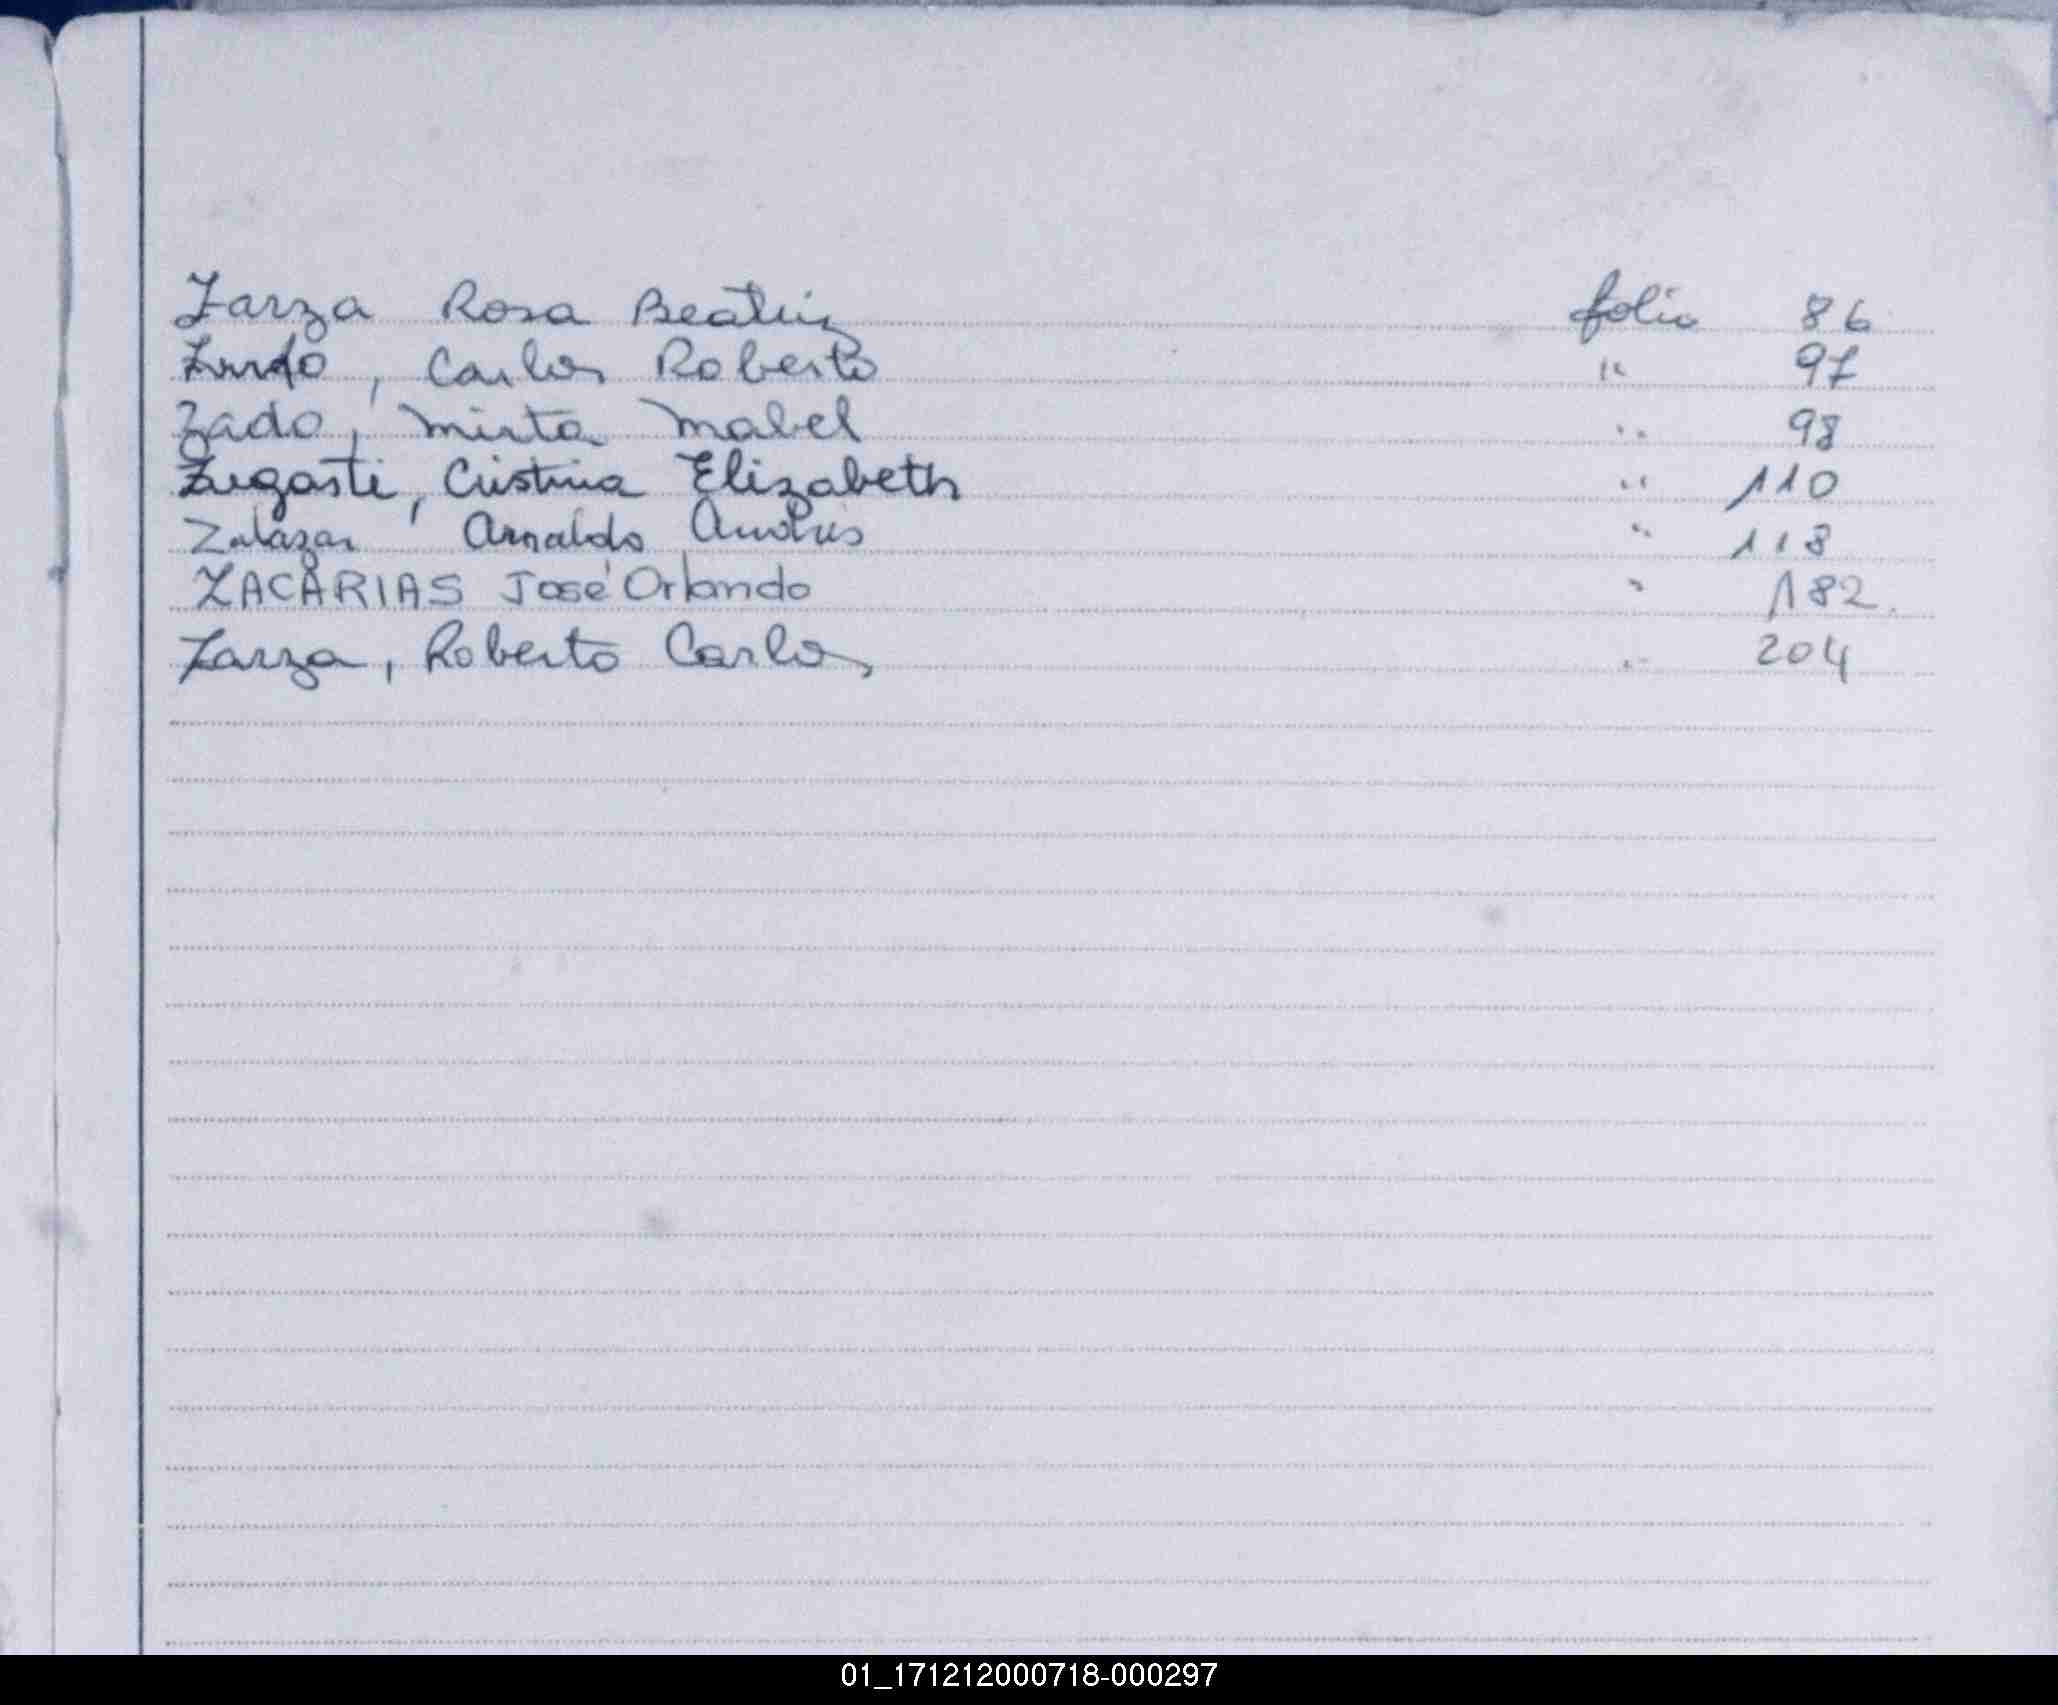 Zarza Rosa Beatriz folio 86
Carlos Roberto " 97
Zado, Mirta Mabel " 98
Zugasti, Cristina Elizabeth " 110
Zalazar, Arnaldo Andrés " 118
ZACARIAS José Orlando " 182.
Zarza, Roberto Carlos " 204
01_171212000718-000297